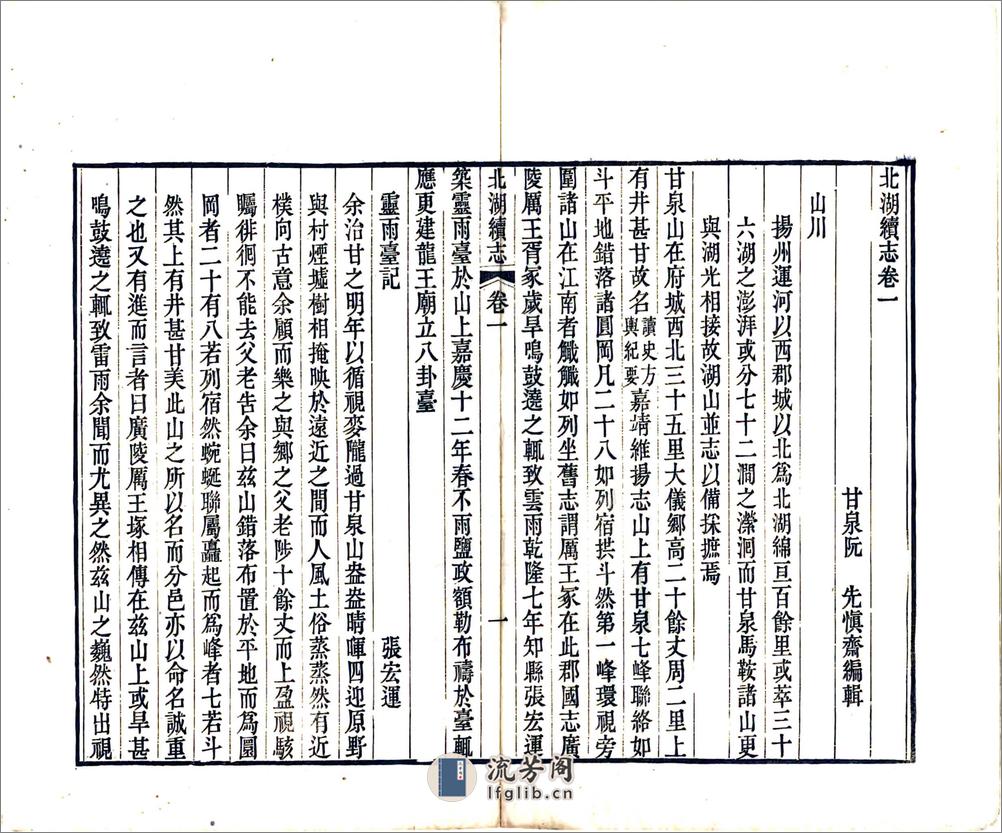 北湖續志卷一
甘泉阮　先慎齋編輯
山川
揚州運河以西郡城以北爲北湖綿亘百餘里或萃三十
六湖之澎湃或分七十二澗之瀠洄而甘泉馬鞍諸山更
與湖光相接故湖山並志以備採摭焉
甘泉山在府城西北三十五里大儀鄉高二十餘丈周二里上
有井甚甘故名讀史方輿紀要嘉靖維揚志山上有甘泉七峰聯絡如
斗平地錯落諸圓岡凡二十八如列宿拱斗然第一峰環視旁
圍諸山在江南者觿觿如列坐舊志謂厲王冢在此郡國志廣
陵厲王胥冢歲旱鳴鼓遶之輒致雲雨乾隆七年知縣張宏運
北湖續志　卷一　一
築靈雨臺於山上嘉慶十二年春不雨鹽政額勒布禱於臺輒
應更建龍王廟立八卦臺
靈雨臺記　張宏運
余治甘之明年以循視麥隴過甘泉山盎盎晴暉四迎原野
與村煙墟樹相掩映於遠近之間而人風土俗蒸蒸然有近
樸向古意余顧而樂之與鄉之父老陟十餘丈而上盈視駭
矚徘徊不能去父老告余曰兹山錯落布置於平地而爲圜
岡者二十有八若列宿然蜿蜒聯屬矗起而爲峰者七若斗
然其上有井甚甘美此山之所以名而分邑亦以命名誠重
之也又有進而言者曰廣陵厲王塚相傳在兹山上或旱甚
鳴鼓遶之輒致雷雨余聞而尤異之然兹山之巍然特出視
流芳阁
lfglib.cn